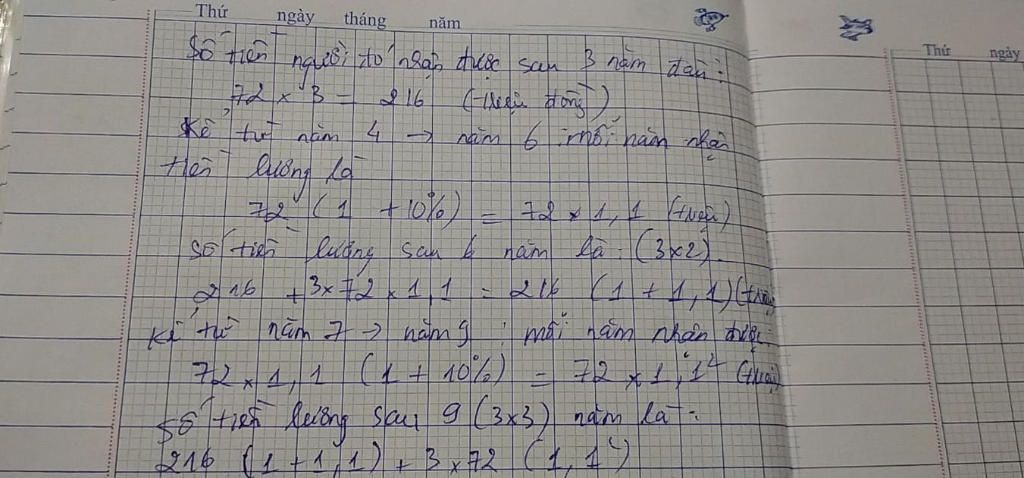 Thứ ngày tháng năm
Thứ ngày
Số tiền người đó nhận được sau 3 năm đầu:
72 × 3 = 216 (triệu đồng)
Kể từ năm 4 → năm 6 mỗi năm nhận
tiền lương là
72 (1 + 10%) = 72 × 1,1 (triệu)
Số tiền lương sau 6 năm là: (3×2)
216 + 3×72 × 1,1 = 216 (1 + 1,1) (triệu)
Kể từ năm 7 → năm 9 : mỗi năm nhận được
72 × 1,1 (1 + 10%) = 72 × 1,1² (triệu)
Số tiền lương sau 9 (3×3) năm là:
216 (1 + 1,1) + 3 × 72 (1,1²)